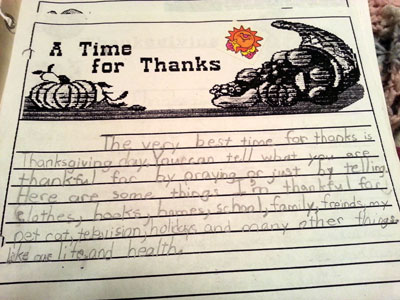 A Time
for Thanks
The very best time for thanks is
Thanksgiving day. You can tell what you are
thankful for by praying or just by telling.
Here are some things I'm thankful for,
clothes, books, homes, school, family, freinds, my
pet cat, television, holidays and many other things,
like our life and health.